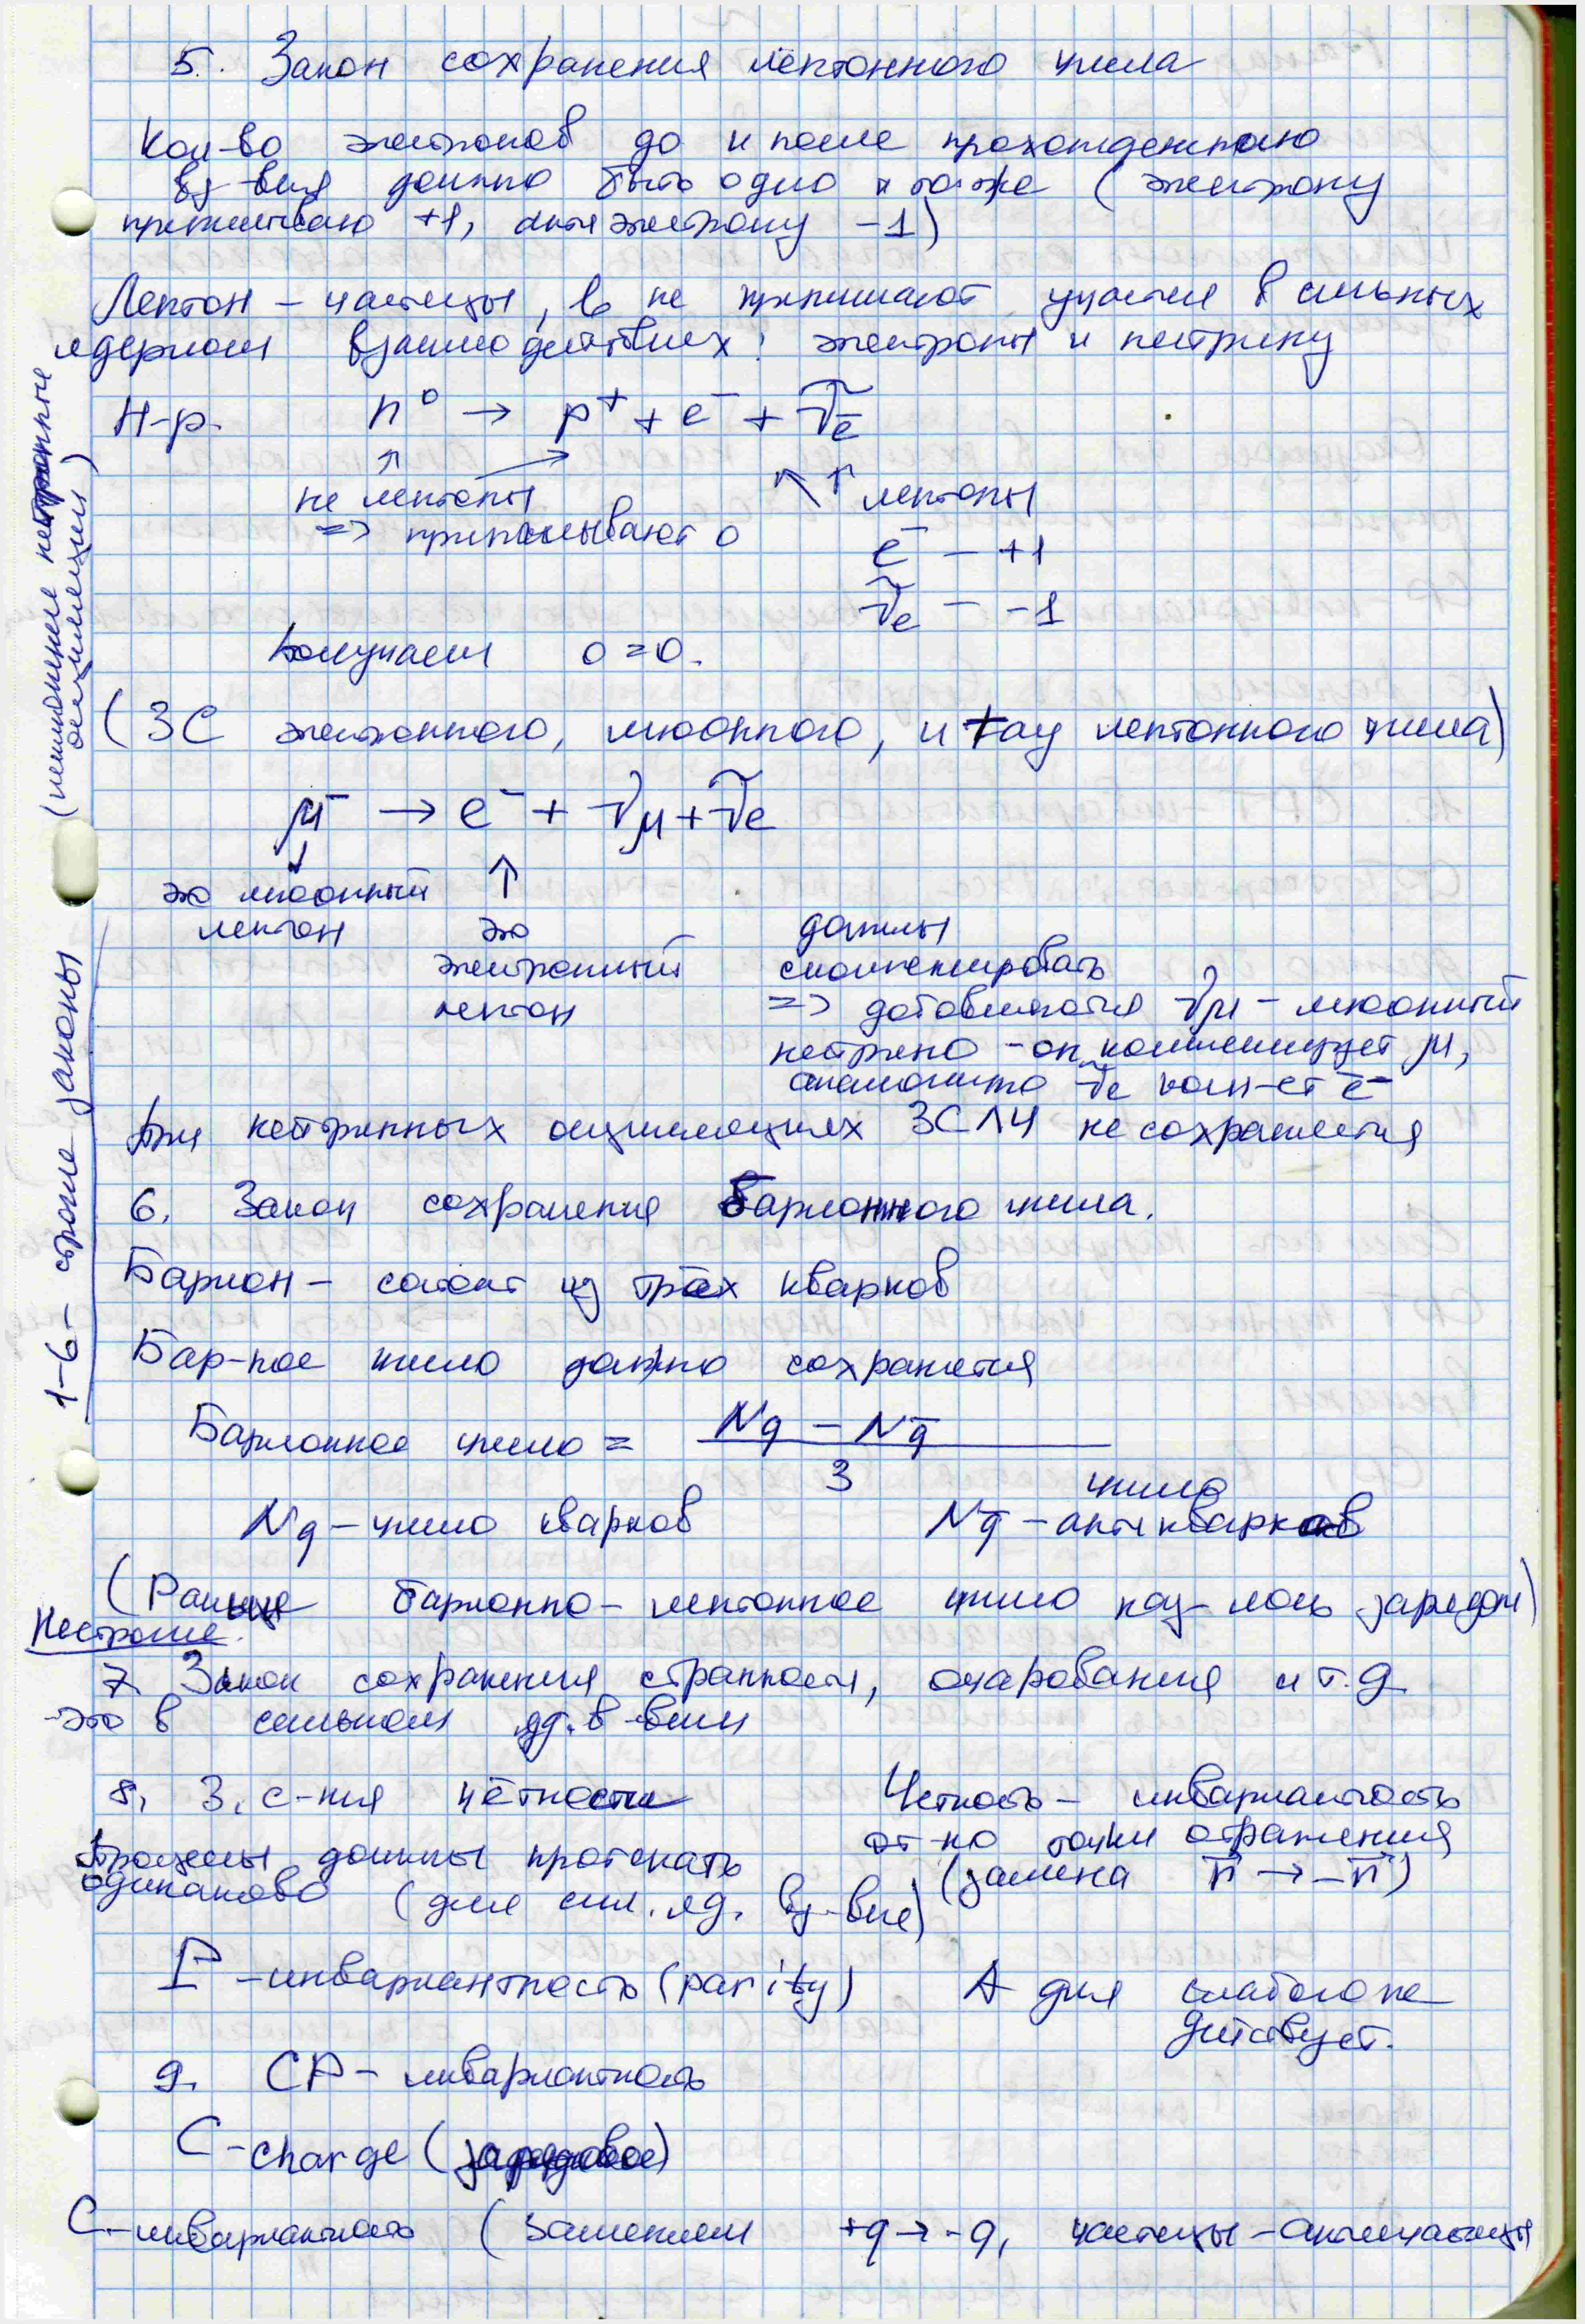 5. Закон сохранения лептонного числа
Кол-во электронов до и после прохождению
вз-вия должно быть одно и то же (электрону
приписываю +1, антиэлектрону -1)
Лептон - частицы, не принимают участия в сильных
ядерном взаимодействиях: электроны и нейтрину
Н-р. n⁰ → p⁺ + e⁻ + ν̃e
не лептоны лептоны
=> приписывают 0 e⁻ - +1
ν̃e - -1
Получаем 0=0.
(ЗС электронного, мюонного, и тау лептонного числа)
μ⁻ → e⁻ + νμ + ν̃e
это мюонный ↑
лептон это должны
электронный скомпенсировать
лептон => добавляется νμ - мюонный
нейтрино - он компенсирует μ,
аналогично ν̃e комп-ет e⁻
При нейтринных осцилляциях ЗСЛЧ не сохраняется
6. Закон сохранения барионного числа.
Барион - состоит из трёх кварков
Бар-ное число должно сохраняется
Барионное число = Nq - Nq̄
3
Nq - число кварков Nq̄ - число антикварков
(Раньше барионно-лептонное число наз-лось зарядом)
Нестрогие.
7. Закон сохранения странности, очарования и т.д
- это в сильном яд. в-вии
8. З. с-ния чётности Четность - инвариантность
от-но точки отражения
Процессы должны протекать (замена n⃗ → -n⃗)
одинаково (для сил. яд. вз-вие)
P - инвариантность (parity) А для слабого не
действует.
9. CP - инвариантность
C - charge (зарядовое)
C - инвариантность (заменяем +q → -q, частицы - античастицы
(исключение нейтринные
осцилляции)
1-6 - строгие законы